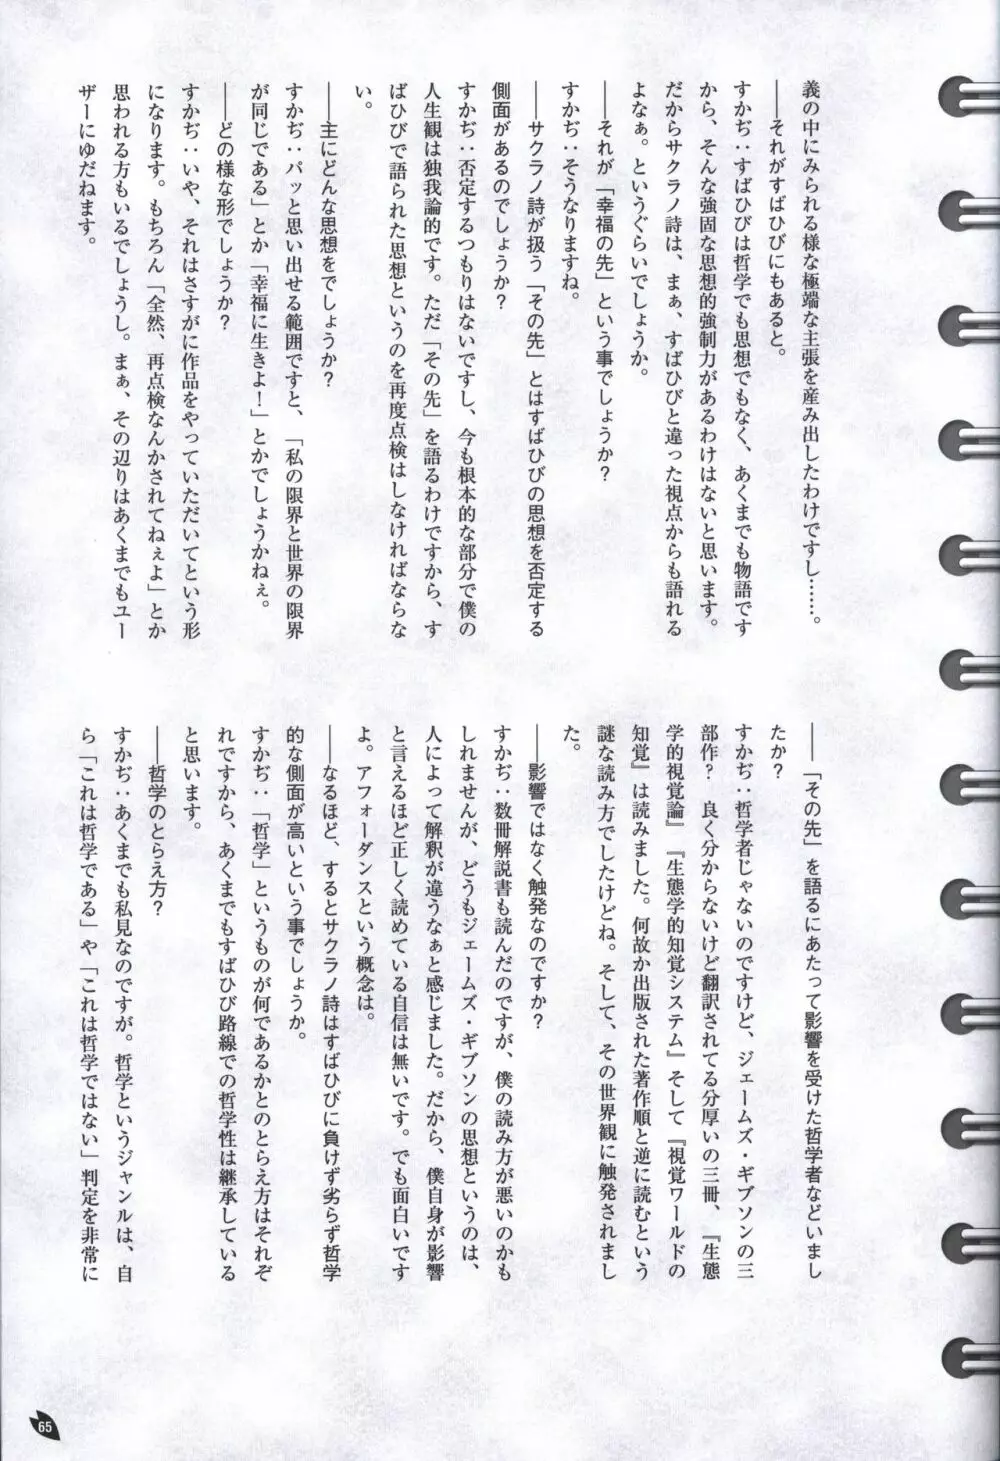 義の中にみられる様な極端な主張を産み出したわけですし……。
――それがすばひびにもあると。
すかぢ：すばひびは哲学でも思想でもなく、あくまでも物語です
から、そんな強固な思想的強制力があるわけはないと思います。
だからサクラノ詩は、まぁ、すばひびと違った視点からも語れる
よなぁ。というぐらいでしょうか。
――それが「幸福の先」という事でしょうか？
すかぢ：そうなりますね。
――サクラノ詩が扱う「その先」とはすばひびの思想を否定する
側面があるのでしょうか？
すかぢ：否定するつもりはないですし、今も根本的な部分で僕の
人生観は独我論的です。ただ「その先」を語るわけですから、す
ばひびで語られた思想というのを再度点検はしなければならな
い。
――主にどんな思想をでしょうか？
すかぢ：パッと思い出せる範囲ですと、「私の限界と世界の限界
が同じである」とか「幸福に生きよ！」とかでしょうかねぇ。
――どの様な形でしょうか？
すかぢ：いや、それはさすがに作品をやっていただいてという形
になります。もちろん「全然、再点検なんかされてねぇよ」とか
思われる方もいるでしょうし。まぁ、その辺りはあくまでもユー
ザーにゆだねます。
――「その先」を語るにあたって影響を受けた哲学者などいまし
たか？
すかぢ：哲学者じゃないのですけど、ジェームズ・ギブソンの三
部作？　良く分からないけど翻訳されてる分厚いの三冊、『生態
学的視覚論』『生態学的知覚システム』そして『視覚ワールドの
知覚』は読みました。何故か出版された著作順と逆に読むという
謎な読み方でしたけどね。そして、その世界観に触発されまし
た。
――影響ではなく触発なのですか？
すかぢ：数冊解説書も読んだのですが、僕の読み方が悪いのかも
しれませんが、どうもジェームズ・ギブソンの思想というのは、
人によって解釈が違うなぁと感じました。だから、僕自身が影響
と言えるほど正しく読めている自信は無いです。でも面白いです
よ。アフォーダンスという概念は。
――なるほど、するとサクラノ詩はすばひびに負けず劣らず哲学
的な側面が高いという事でしょうか。
すかぢ：「哲学」というものが何であるかとのとらえ方はそれぞ
れですから、あくまでもすばひび路線での哲学性は継承している
と思います。
――哲学のとらえ方？
すかぢ：あくまでも私見なのですが。哲学というジャンルは、自
ら「これは哲学である」や「これは哲学ではない」判定を非常に
65